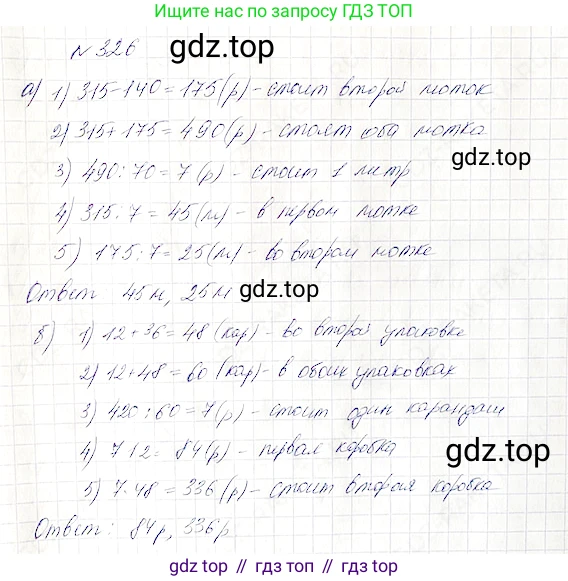 Ищите нас по запросу ГДЗ ТОП
№ 326
gdz.top
а) 1) 315-140=175(р)-стоит второй моток
2) 315+175=490(р)-стоят оба мотка
gdz.top
3) 490:70=7(р)-стоит 1 литр
4) 315:7=45(м)-в первом мотке
gdz.top
5) 175:7=25(м)-во втором мотке
Ответ: 45м, 25м
gdz.top
б) 1) 12+36=48(кар)-во второй упаковке
2) 12+48=60(кар)-в обоих упаковках
3) 420:60=7(р)-стоит один карандаш
4) 7·12=84(р)-первая коробка
gdz.top
5) 7·48=336(р)-стоит вторая коробка
Ответ: 84р, 336р
gdz.top // гдз топ // гдз.топ